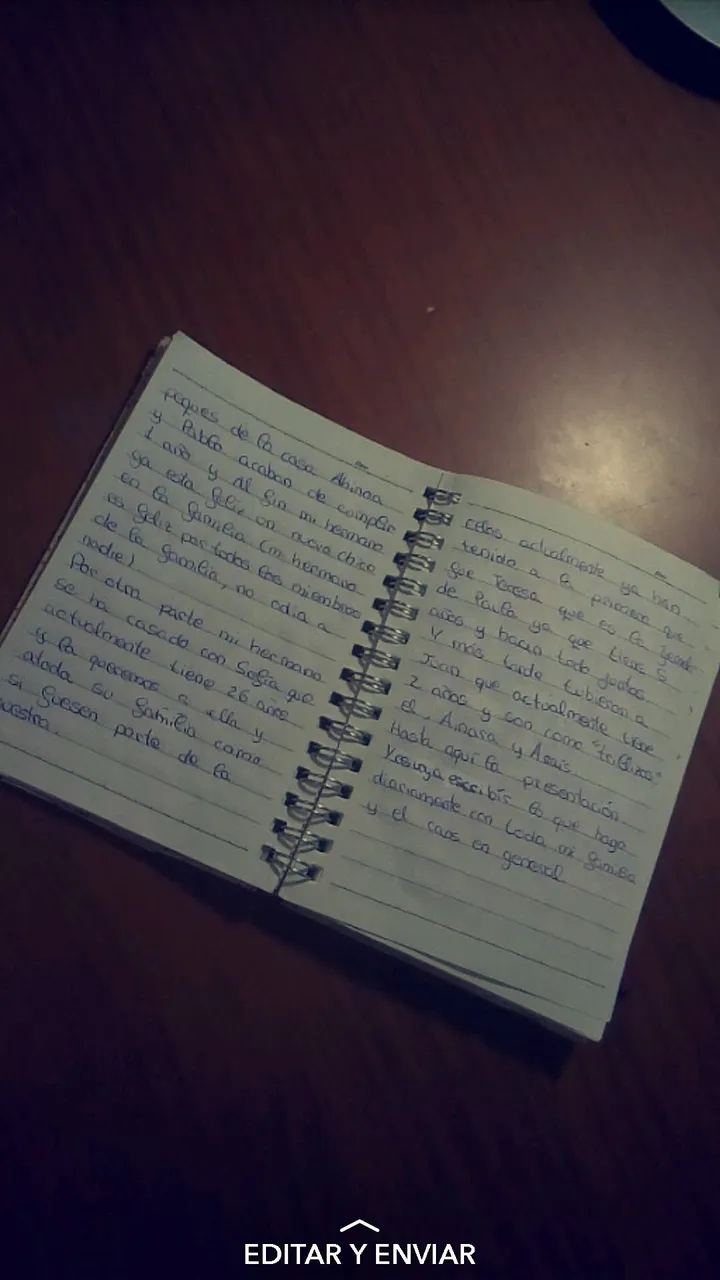 peques de la casa Ainoa
y Pablo acaban de cumplir
1 año y al fin mi hermano
ya esta feliz un nuevo chico
en la familia (mi hermano
es feliz por todos los miembros
de la familia, no odia a
nadie)
Por otra parte mi hermano
se ha casado con Sofia que
actualmente tiene 26 años
y la queremos a ella y
atoda su familia como
si fuesen parte de la
nuestra.
ellos actualmente ya han
tenido a la primera que
fue Teresa que es la
de Paula ya que tiene 5
años y hacen todo juntas
Y más tarde tubieron a
Juan que actualmente tiene
2 años y son como "trillizos"
el, Ainara y Anais.
Hasta aquí la presentación
Y escribir lo que hago
diariamente con toda mi familia
y el caos en general
EDITAR Y ENVIAR